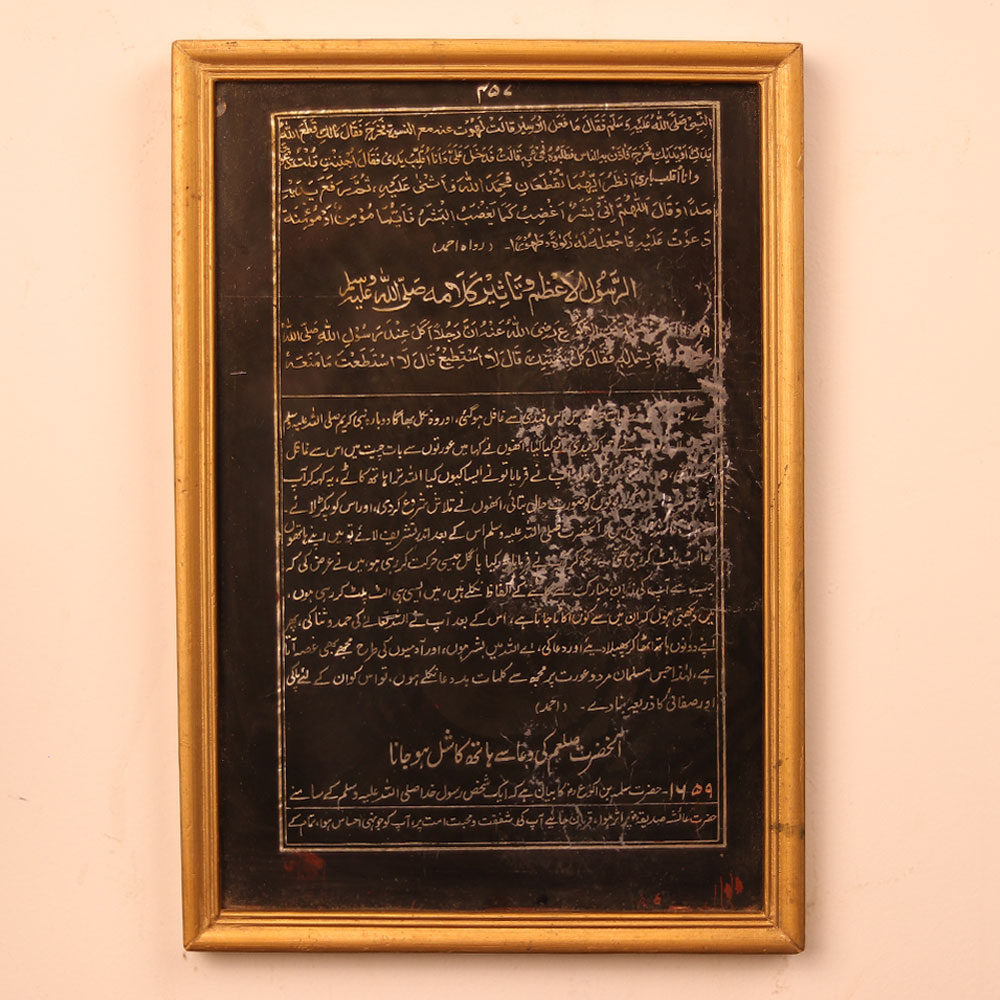 ۴۵۷
النبی صلی الله علیه وسلم فقال ما فعل الاسیر قالت لهوت عنه مع النسوة فخرج فقال مالك قطع الله
یدك او یدیك فخرج فاذن به الناس فطلبوه فجیء به قالت فدخل علی وانا اقلب یدی فقال اجننت قلت
انظر ایهما تقطعان فحمد الله واثنی علیه، ثم رفع یدیه
مدا وقال اللهم انی بشر اغضب كما یغضب البشر فایما مؤمن او مؤمنة
دعوت علیه فاجعله له زكوة وطهورا۔ (رواه احمد)
الرسول الاعظم وتاثیر كلامه صلی الله علیه وسلم
الاكوع رضی الله عنه ان رجلا اكل عند رسول الله صلی الله
بشماله فقال كل بیمینك قال لا استطیع قال لا استطعت ما منعه
اس قیدی سے غافل ہوگئی، اور وہ نکل بھاگا دوبارہ نبی کریم صلی اللہ علیہ وسلم
کیا کیا؟ انھوں نے کہا میں عورتوں سے بات چیت میں اس سے غافل
نے فرمایا تو نے ایسا کیوں کیا اللہ ترا ہاتھ کاٹے، یہ کہہ کر آپ
کو صورت حال بتائی، انھوں نے تلاش شروع کردی، اور اس کو پکڑ لائے۔
آنحضرت صلی اللہ علیہ وسلم اس کے بعد اندر تشریف لائے تو میں اپنے ہاتھوں
کو الٹ پلٹ کر رہی تھی، نے فرمایا کیا پاگل جیسی حرکت کر رہی ہو، میں نے عرض کی کہ
جب سے آپ کی زبان مبارک سے کے الفاظ نکلے ہیں، میں ایسی ہی الٹ پلٹ کر رہی ہوں،
میں دیکھتی ہوں کہ ان میں سے کون سا کاٹا جاتا ہے، اس کے بعد آپ نے اللہ تعالے کی حمد و ثنا کی، پھر
اپنے دونوں ہاتھ اٹھا کر پھیلا دیئے اور دعا کی، اے اللہ میں بشر ہوں، اور آدمیوں کی طرح مجھے بھی غصہ آتا
ہے، لہٰذا جس مسلمان مرد و عورت پر مجھ سے کلمات بد دعا نکلے ہوں، تو اس کو ان کے لئے پاکی
اور صفائی کا ذریعہ بنا دے۔ (احمد)
آنحضرت صلعم کی دعا سے ہاتھ کا شل ہو جانا
۱۶۵۹۔ حضرت سلمہ بن اکوع رض کا بیان ہے کہ ایک شخص رسول خدا صلی اللہ علیہ وسلم کے سامنے
حضرت عائشہ صدیقہ پر اثر ہوا، قربان جائیے آپ کی شفقت و محبت امت پر، آپ کو جونہی احساس ہوا، تمام کے